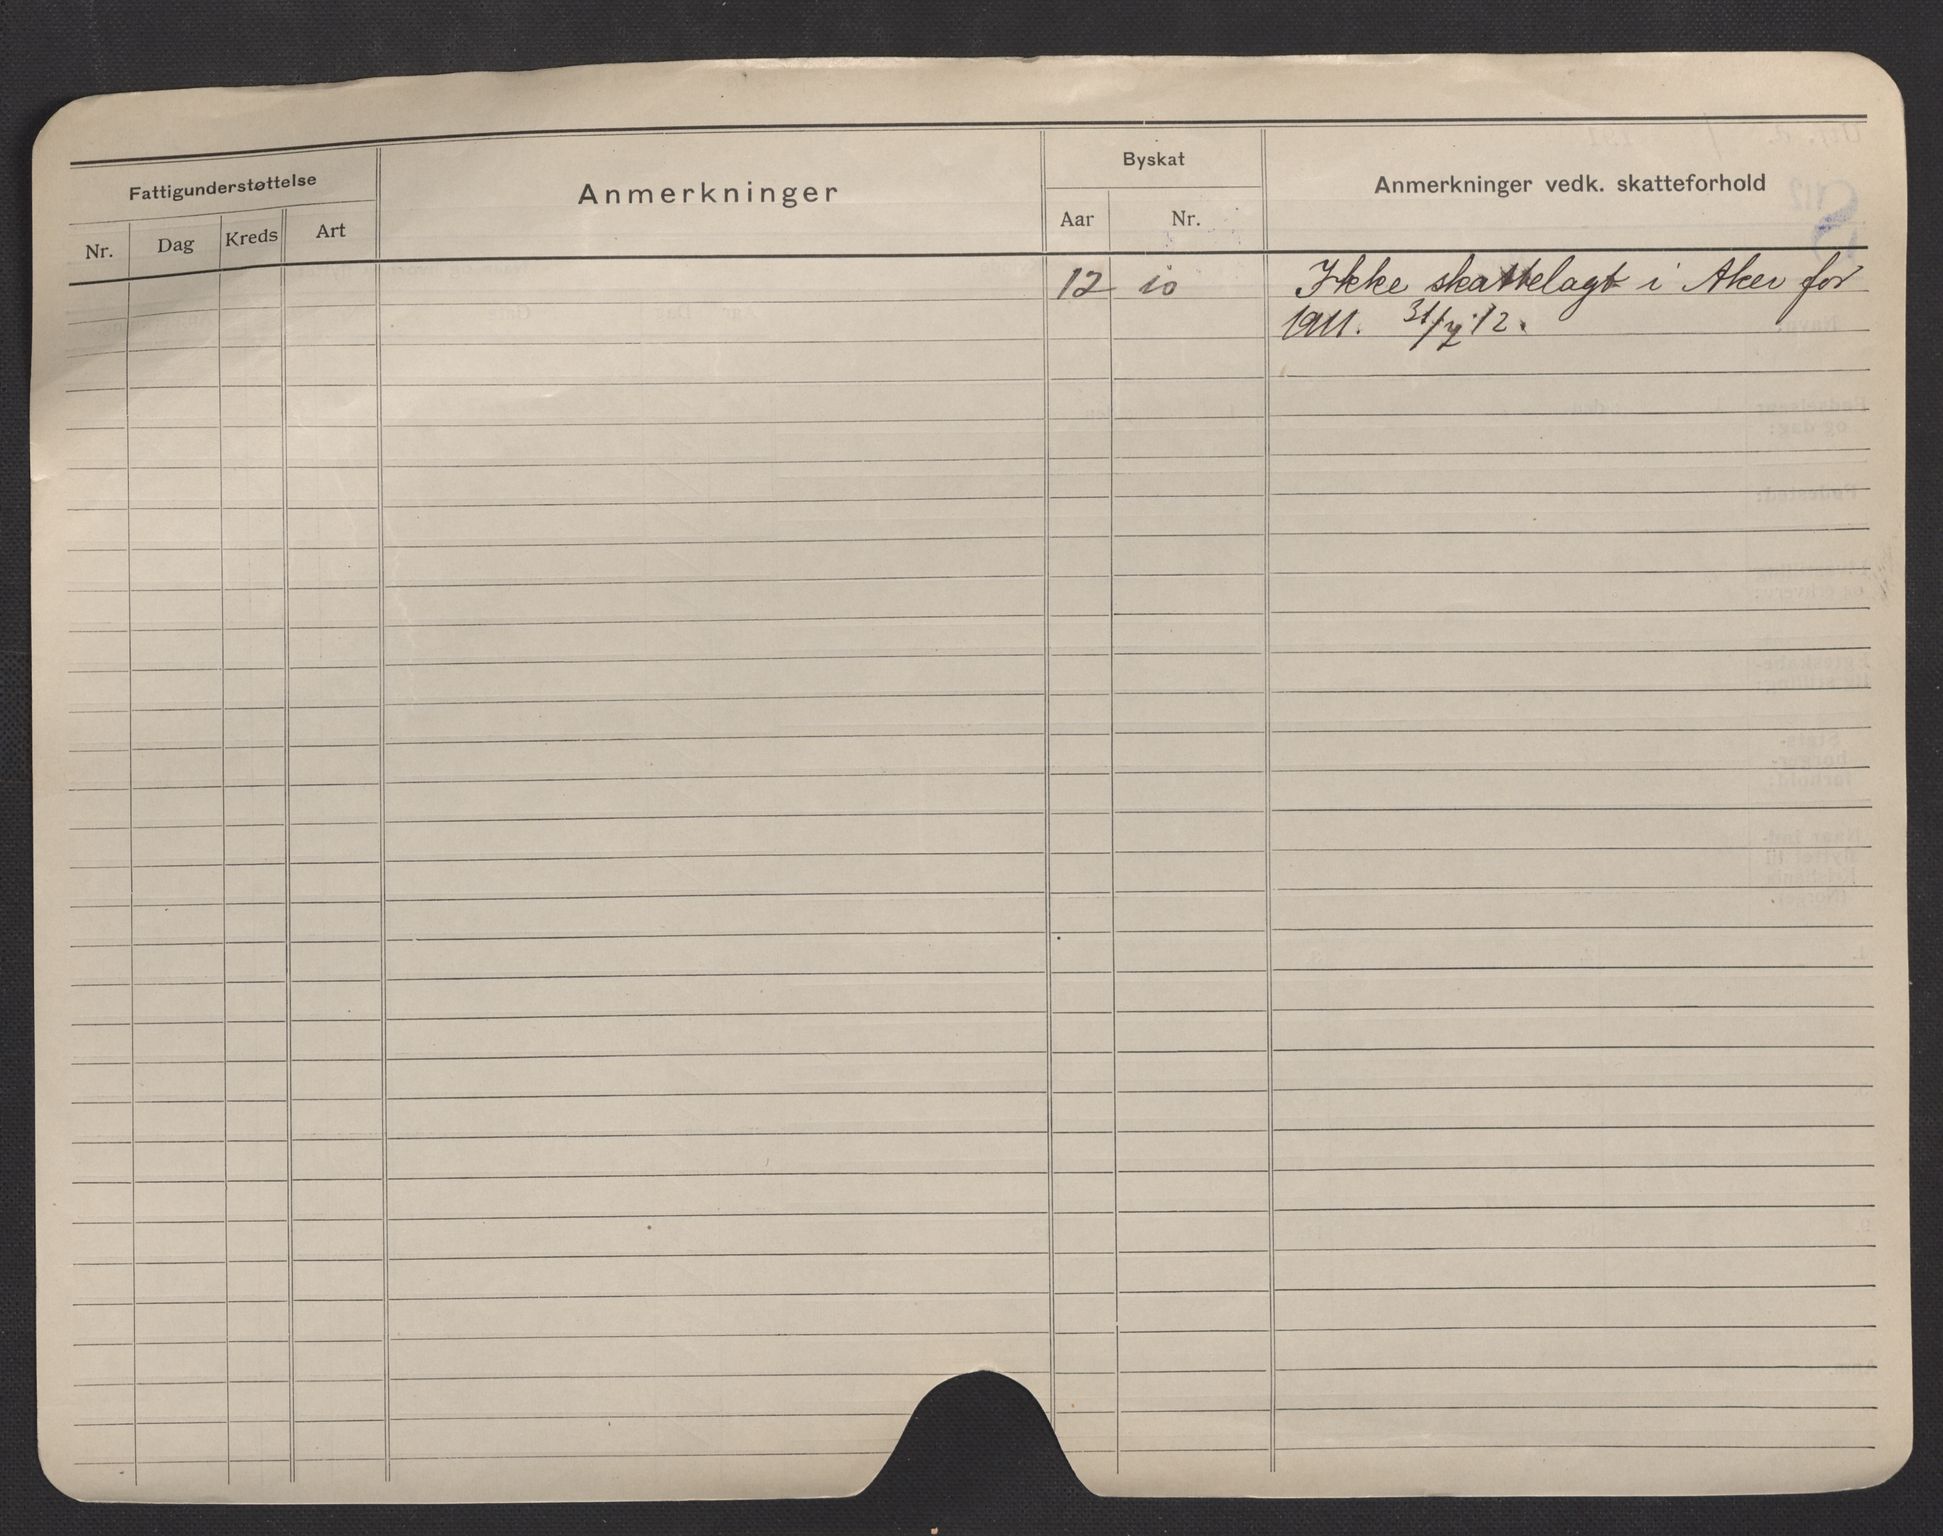 Fattigunderstøttelse
Anmerkninger
Byskat
Anmerkninger vedk. skatteforhold
Nr. Dag Kreds Art
Aar Nr.
12 io Ikke skattelagt i Aker for
1911. 31/7 12.